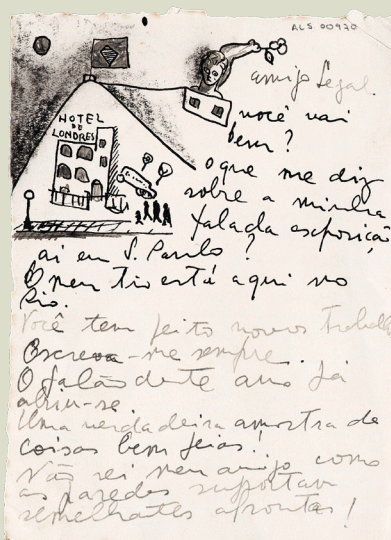 ALS 00970
HOTEL
DE
LONDRES
amigo Segal.
você vai
bem?
o que me diz
sobre a minha
falada exposição
ai em S. Paulo?
O meu tio está aqui no
Rio.
Você tem feito novos trabalhos
Escreva-me sempre.
O salão deste ano já
abriu-se.
Uma verdadeira amostra de
coisas bem feias!
Não sei meu amigo como
as paredes suportam
semelhantes afrontas!